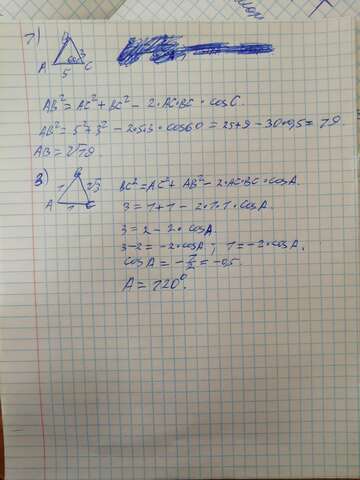 1)
B
3
60
A 5 C
AB² = AC² + BC² - 2·AC·BC·cos C.
AB² = 5² + 3² - 2·5·3·cos60 = 25+9 - 30·0,5 = 19.
AB = √19.
3)
B
1 √3
A 1 C
BC² = AC² + AB² - 2·AC·BC·cos A.
3 = 1+1 - 2·1·1·cos A.
3 = 2 - 2·cos A.
3-2 = -2·cos A; 1 = -2·cos A.
cos A = -1/2 = -0,5.
A = 120°.